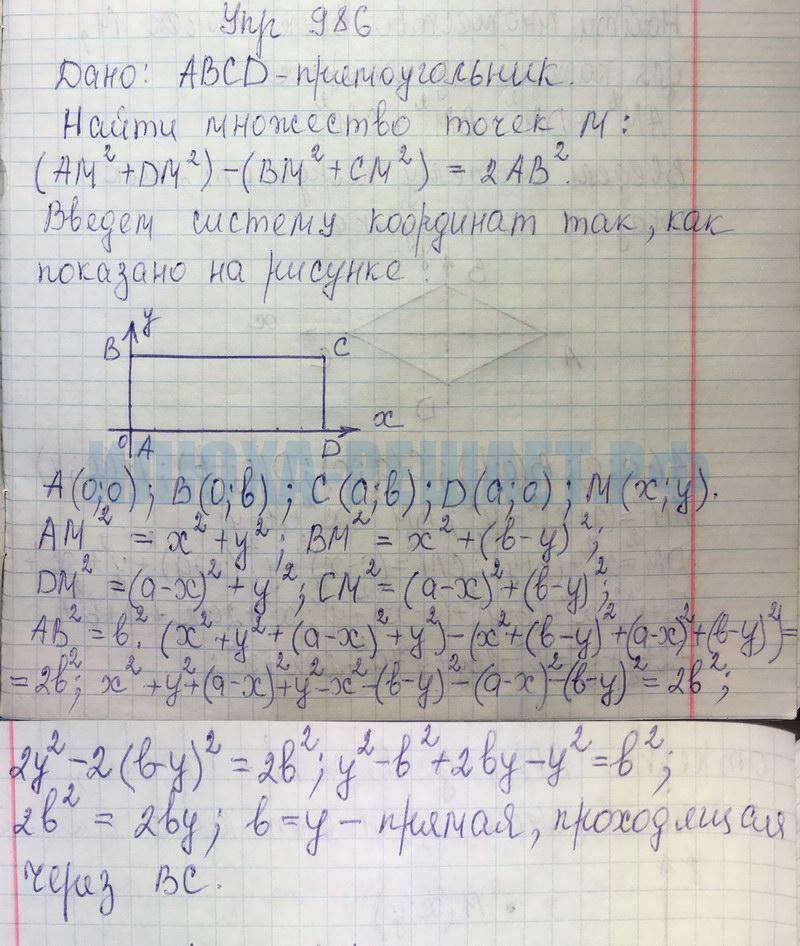 Упр 986
Дано: ABCD - прямоугольник.
Найти множество точек M:
(AM²+DM²)-(BM²+CM²) = 2AB².
Введем систему координат так, как
показано на рисунке:
y
B
C
x
O A
D
A(0;0); B(0;в); C(a;в); D(a;0); M(x;y).
AM² = x²+y²; BM² = x²+(в-y)²;
DM² =(a-x)²+y²; CM²=(a-x)²+(в-y)²;
AB²=в². (x²+y²+(a-x)²+y²)-(x²+(в-y)²+(a-x)²+(в-y)²)=
=2в²; x²+y²+(a-x)²+y²-x²-(в-y)²-(a-x)²-(в-y)²=2в²;
2y²-2(в-y)²=2в²; y²-в²+2вy-y²=в²;
2в² = 2вy; в=y - прямая, проходящая
через BC.